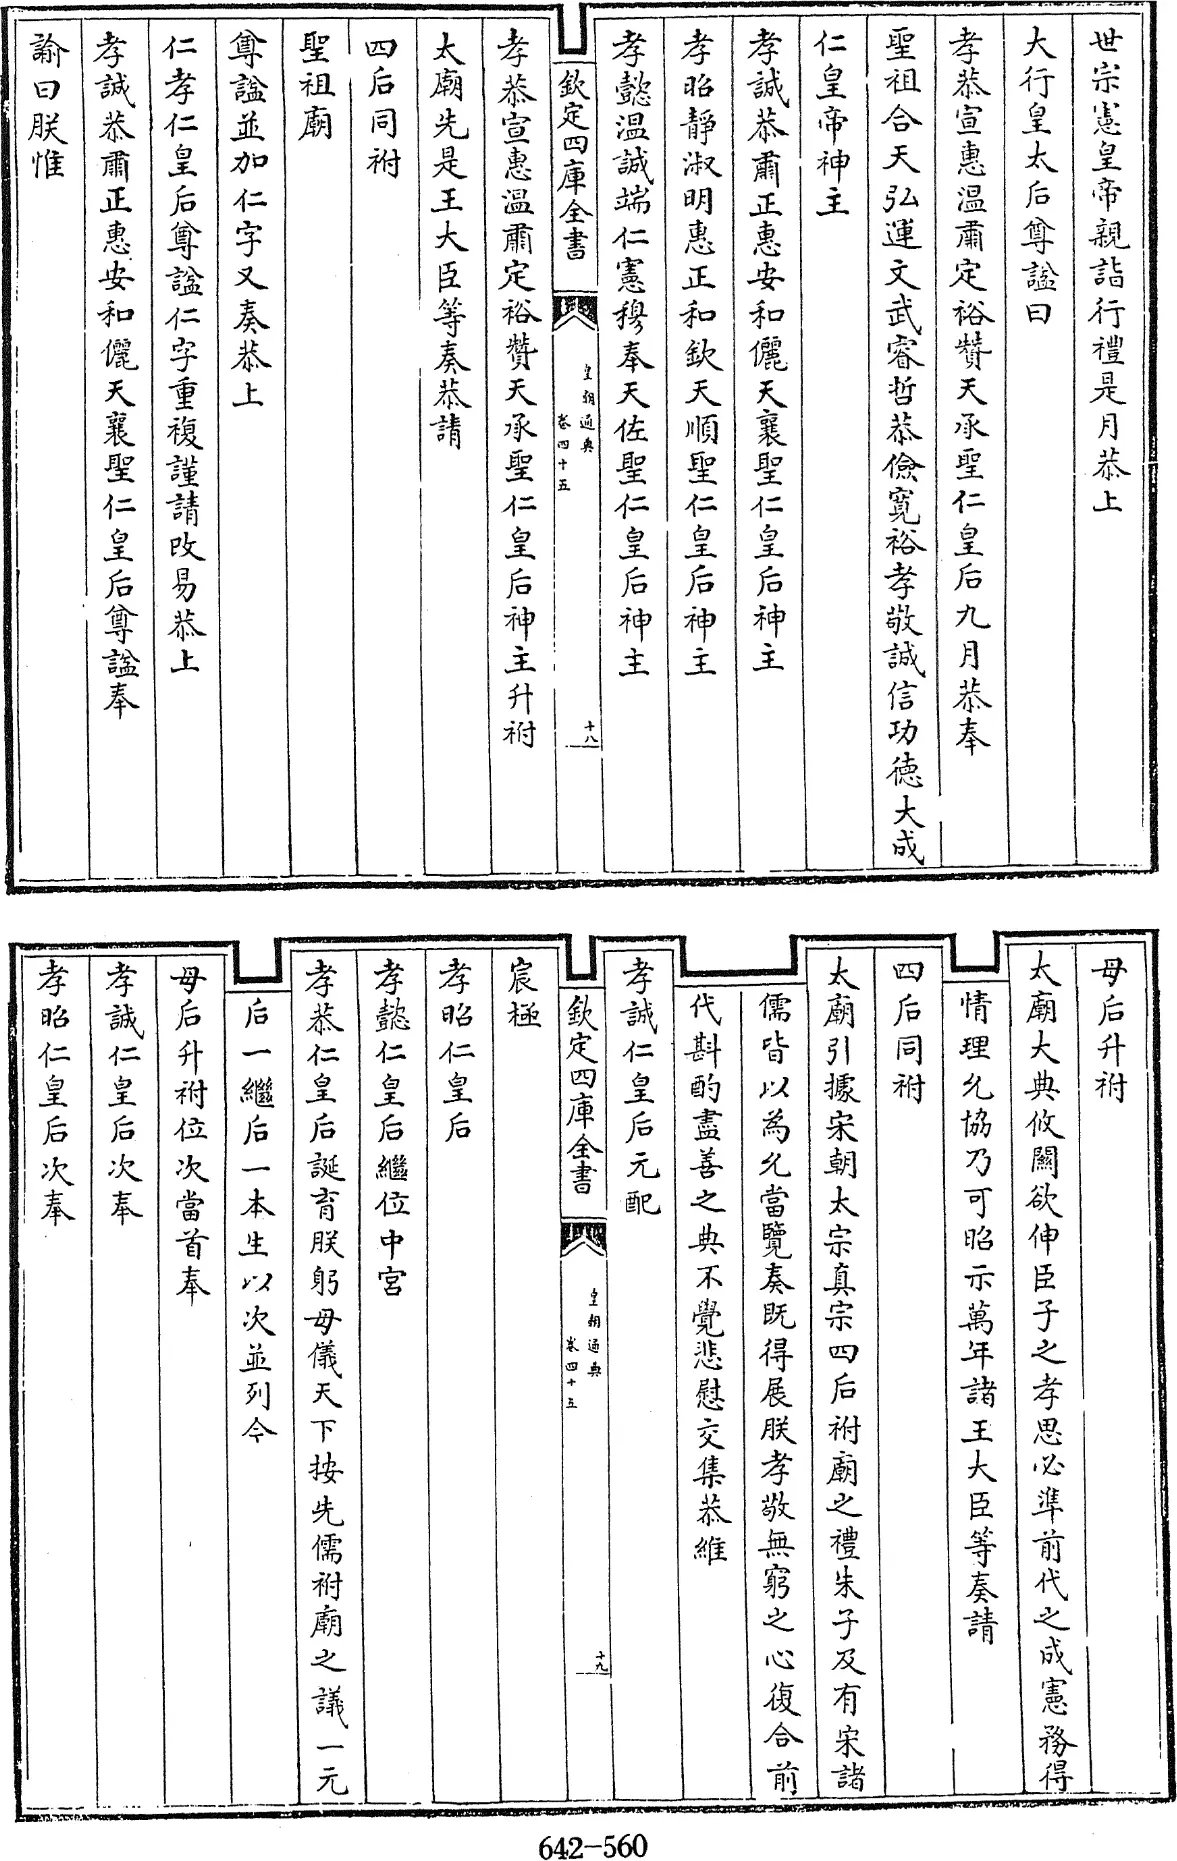 世宗憲皇帝親詣行禮是月恭上
大行皇太后尊諡曰
孝恭宣惠温肅定裕贊天承聖仁皇后九月恭奉
聖祖合天弘運文武睿哲恭儉寛裕孝敬誠信功德大成
仁皇帝神主
孝誠恭肅正惠安和儷天襄聖仁皇后神主
孝昭靜淑明惠正和欽天順聖仁皇后神主
孝懿温誠端仁憲穆奉天佐聖仁皇后神主
欽定四庫全書
皇朝通典
卷四十五
十八
孝恭宣惠温肅定裕贊天承聖仁皇后神主升祔
太廟先是王大臣等奏恭請
四后同祔
聖祖廟
尊諡並加仁字又奏恭上
仁孝仁皇后尊諡仁字重複謹請改易恭上
孝誠恭肅正惠安和儷天襄聖仁皇后尊諡奉
諭曰朕惟
母后升祔
太廟大典攸關欲伸臣子之孝思必準前代之成憲務得
情理允協乃可昭示萬年諸王大臣等奏請
四后同祔
太廟引據宋朝太宗真宗四后祔廟之禮朱子及有宋諸
儒皆以為允當覽奏既得展朕孝敬無窮之心復合前
代斟酌盡善之典不覺悲慰交集恭維
孝誠仁皇后元配
欽定四庫全書
皇朝通典
卷四十五
十九
宸極
孝昭仁皇后
孝懿仁皇后繼位中宮
孝恭仁皇后誕育朕躬母儀天下按先儒祔廟之議一元
后一繼后一本生以次並列今
母后升祔位次當首奉
孝誠仁皇后次奉
孝昭仁皇后次奉
642-560